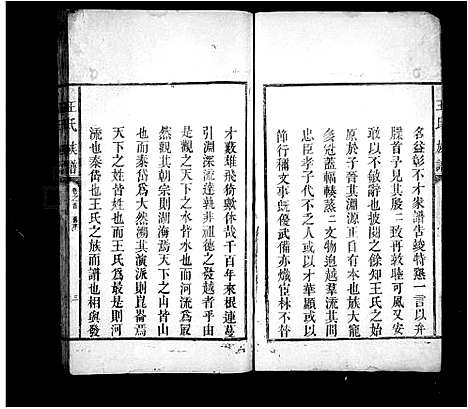 王氏族譜
名益彰不才家譜告綾特懇一言以弁
牒首予見其殷二致再敦睦可風又安
可以不敏辭也披閱之餘知王氏之始
原於子晉其淵源正自有本也族大
冠蓋蝠輳蒸二文物逈越羣流其間
忠臣孝子代不乏人或以才華顯或以
節行稱文事旣優武備亦熾宦林不啻
才藪雄飛猗歟休哉千百年來根連蔓
引淵深流達孰非祖德之發越者乎由
是觀之天下之水皆水也而河流爲最
然觀其朝宗則湖海焉天下之山皆山
也而泰岱爲大然溯其演派則崑崙焉
天下之姓皆姓也而王氏爲最是則河
流也泰岱也王氏之族而譜也相與發
王氏族譜
卷之首
三